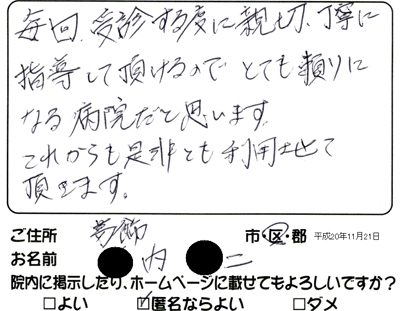 毎回、受診する度に親切、丁寧に
指導して頂けるので とても頼りに
なる病院だと思います。
これからも是非とも利用させて
頂きます。
ご住所 葛飾 市・区・郡 平成20年11月21日
お名前 内 二
院内に掲示したり、ホームページに載せてもよろしいですか?
□よい ☑匿名ならよい □ダメ